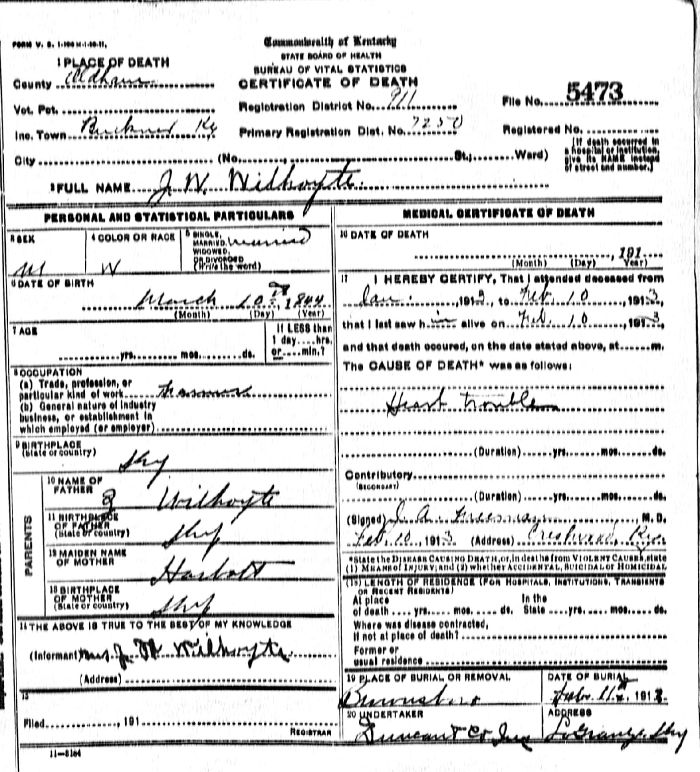 FORM V. S. 1-100 M-1-10-11,
Commonwealth of Kentucky
STATE BOARD OF HEALTH
BUREAU OF VITAL STATISTICS
CERTIFICATE OF DEATH
1 PLACE OF DEATH
County Oldham
Vot. Pct.
Inc. Town Buckner Ky
City (No. St.; Ward)
Registration District No. 911
Primary Registration Dist. No. 7250
File No. 5473
Registered No.
[If death occurred in a hospital or institution, give its NAME instead of street and number.]
2 FULL NAME J. W. Wilhoyte.
PERSONAL AND STATISTICAL PARTICULARS
3 SEX
M
4 COLOR OR RACE
W
5 SINGLE, MARRIED, WIDOWED, OR DIVORCED (Write the word) Married
6 DATE OF BIRTH
March 10th, 1844
(Month) (Day) (Year)
7 AGE
yrs. mos. ds.
If LESS than 1 day hrs. or min.?
8 OCCUPATION
(a) Trade, profession, or particular kind of work Farmer
(b) General nature of industry
business, or establishment in
which employed (or employer)
9 BIRTHPLACE
(State or country) Ky
PARENTS
10 NAME OF FATHER Wilhoyte
11 BIRTHPLACE OF FATHER (State or country) Ky
12 MAIDEN NAME OF MOTHER
13 BIRTHPLACE OF MOTHER (State or country) Ky
14 THE ABOVE IS TRUE TO THE BEST OF MY KNOWLEDGE
(Informant) Mrs J W Wilhoyte
(Address)
15
Filed , 191
REGISTRAR
11-3184
MEDICAL CERTIFICATE OF DEATH
16 DATE OF DEATH
, 191
(Month) (Day) (Year)
17 I HEREBY CERTIFY, That I attended deceased from
Jan. 1913, to Feb. 10, 1913
that I last saw him alive on Feb. 10, 1913
and that death occured, on the date stated above, at m.
The CAUSE OF DEATH* was as follows:
Heart trouble
(Duration) yrs. mos. ds.
Contributory
(SECONDARY)
(Duration) yrs. mos. ds.
(Signed) J. A. M. D.
Feb. 10, 1913 (Address) Ky.
*State the DISEASE CAUSING DEATH, or, in deaths from VIOLENT CAUSES, state
(1) MEANS OF INJURY; and (2) whether ACCIDENTAL, SUICIDAL OF HOMICIDAL
(18) LENGTH OF RESIDENCE (FOR HOSPITALS, INSTITUTIONS, TRANSIENTS
OR RECENT RESIDENTS)
At place of death yrs. mos. ds. In the State yrs. mos. ds.
Where was disease contracted,
if not at place of death?
Former or
usual residence
19 PLACE OF BURIAL OR REMOVAL
Brownsboro
DATE OF BURIAL
Feb. 11th, 1913
20 UNDERTAKER
Duncan & Co Inc
ADDRESS
LaGrange Ky